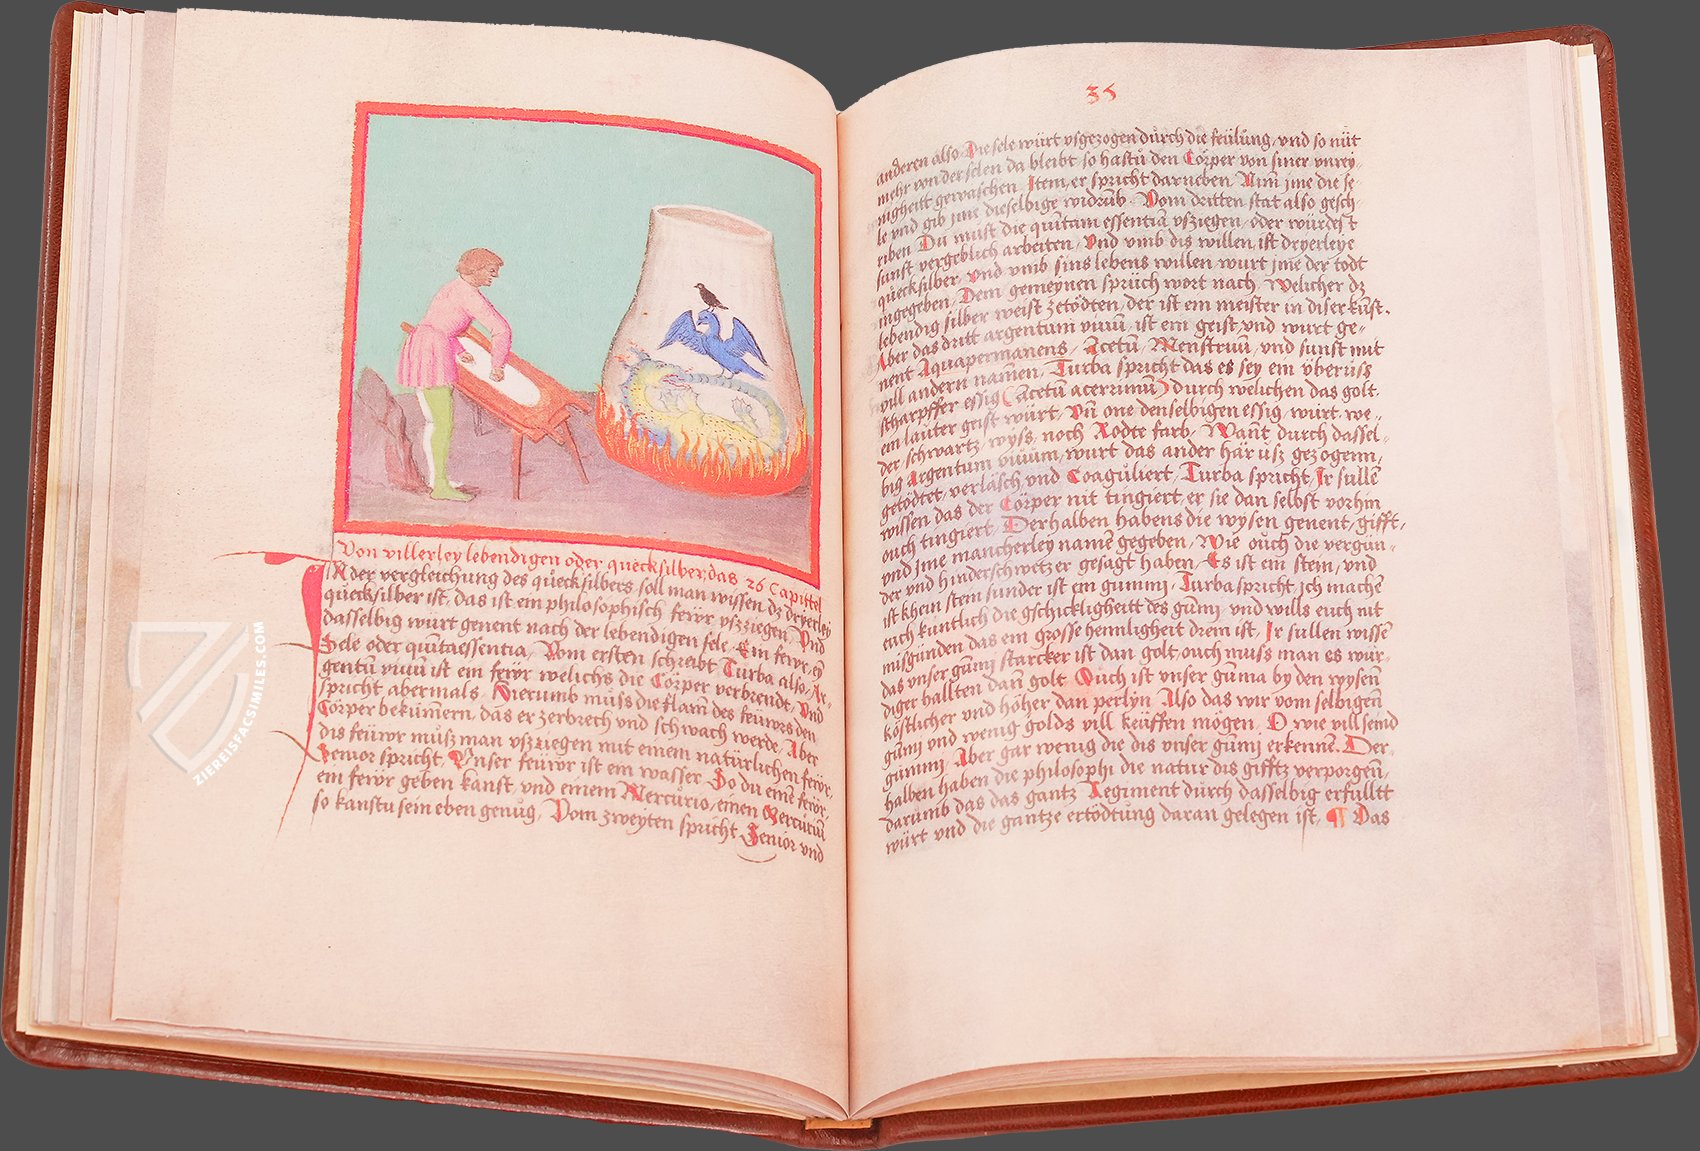 Von villerley lebendigen oder quecksilber, das 26 Capittel
IN der vergleichung des quecksilbers soll man wissen dz dryerley
quecksilber ist, das ist ein philosophisch fewr vszziegen Vnd
dasselbig würt genent nach der lebendigen sele, Ein fewr, ey
Sele oder quintaessentia, Vom ersten schribt Turba also, Ar-
gentū viuū ist ein fewr welichs die Cörper verbrendt, Vnd
spricht abermals, Hierumb muss die flam des feuwrs den
Cörper bekümern, das er zerbrech vnd schwach werde, Aber
dis feuwr musz man vszziegen mit einem natürlichen fewr,
Senior spricht, Vnser feuwr ist ein wasser, So du eine fewr
ein fewr geben kanst, vnd einem Mercurio, einen Mercuriū
so kanstu sein eben genug, Vom zweyten spricht Senior vnd
ZIEREISFACSIMILES.COM
35
anderen also Die sele würt vsgezogen durch die feülung, vnd so nüt
mehr von der selen da bleibt so hastu den Cörper von siner vnrey-
nigheitt gewaschen, Item, er spricht darneben Nim jme die se-
le vnd gib jme dieselbige widrub, Vom dritten stat also gesch-
riben Du must die quintam essentiā vszziegen, oder würdest
sunst vergeblich arbeiten, Vnd vmb dis willen ist dryerleye
quecksilber, vnd vmb sins lebens willen wurt jme der todt
ingegeben, Dem gemeynen sprüch wort nach, Welicher dz
lebendig silber weist zetödten, der ist ein meister in diser kunst.
Aber das dritt argentum viuū, ist ein geist, vnd wurt ge-
nent Aquapermanens, Acetū, Menstruū, vnd sunst mit
vill andern namen, Turba spricht das es sey ein überusz
scharpffer essig (acetū acerrimū) durch welichen das golt
ein lauter geist würt, Vn one denselbigen essig, würt we-
der schwartz, wyss, noch Rodte farb, Want durch dassel-
big Argentum viuum, wurt das ander har usz gezogenn,
getödtet, verläsch, vnd Coaguliert, Turba spricht, Ir sullē
wissen das der Cörper nit tingiert er sie dan selbst vorhin
ouch tingiert, Derhalben habens die wysen genent, gifft,
vnd jme mancherley namē gegeben, Wie ouch die vergun-
der vnd hinderschwetzer gesagt haben, Es ist ein stein, vnd
ist khein stein sunder ist ein gummj, Turba spricht, jch machē
euch kuntlich die gschickligheitt des gumj, vnd wills euch nit
misgünden das ein grosse heimligheit drein ist, Ir sullen wissē
das vnser gumj starcker ist dan golt, ouch muss man es wür-
diger hallten dan golt, Ouch ist vnser guma by den wysenn
köstlicher vnd höher dan perlyn Also das wir vom selbigenn
gumj vnd wenig golds vill keüffen mögen, O wie vill seind
gummj, Aber gar wenig die dis vnser gumj erkennē, Der-
halben haben die philosophi die natur dis gifftz verporgen,
darumb das das gantz Regiment durch dasselbig erfulltt
würt vnd die gantze ertödtung daran gelegen ist, ¶ Das